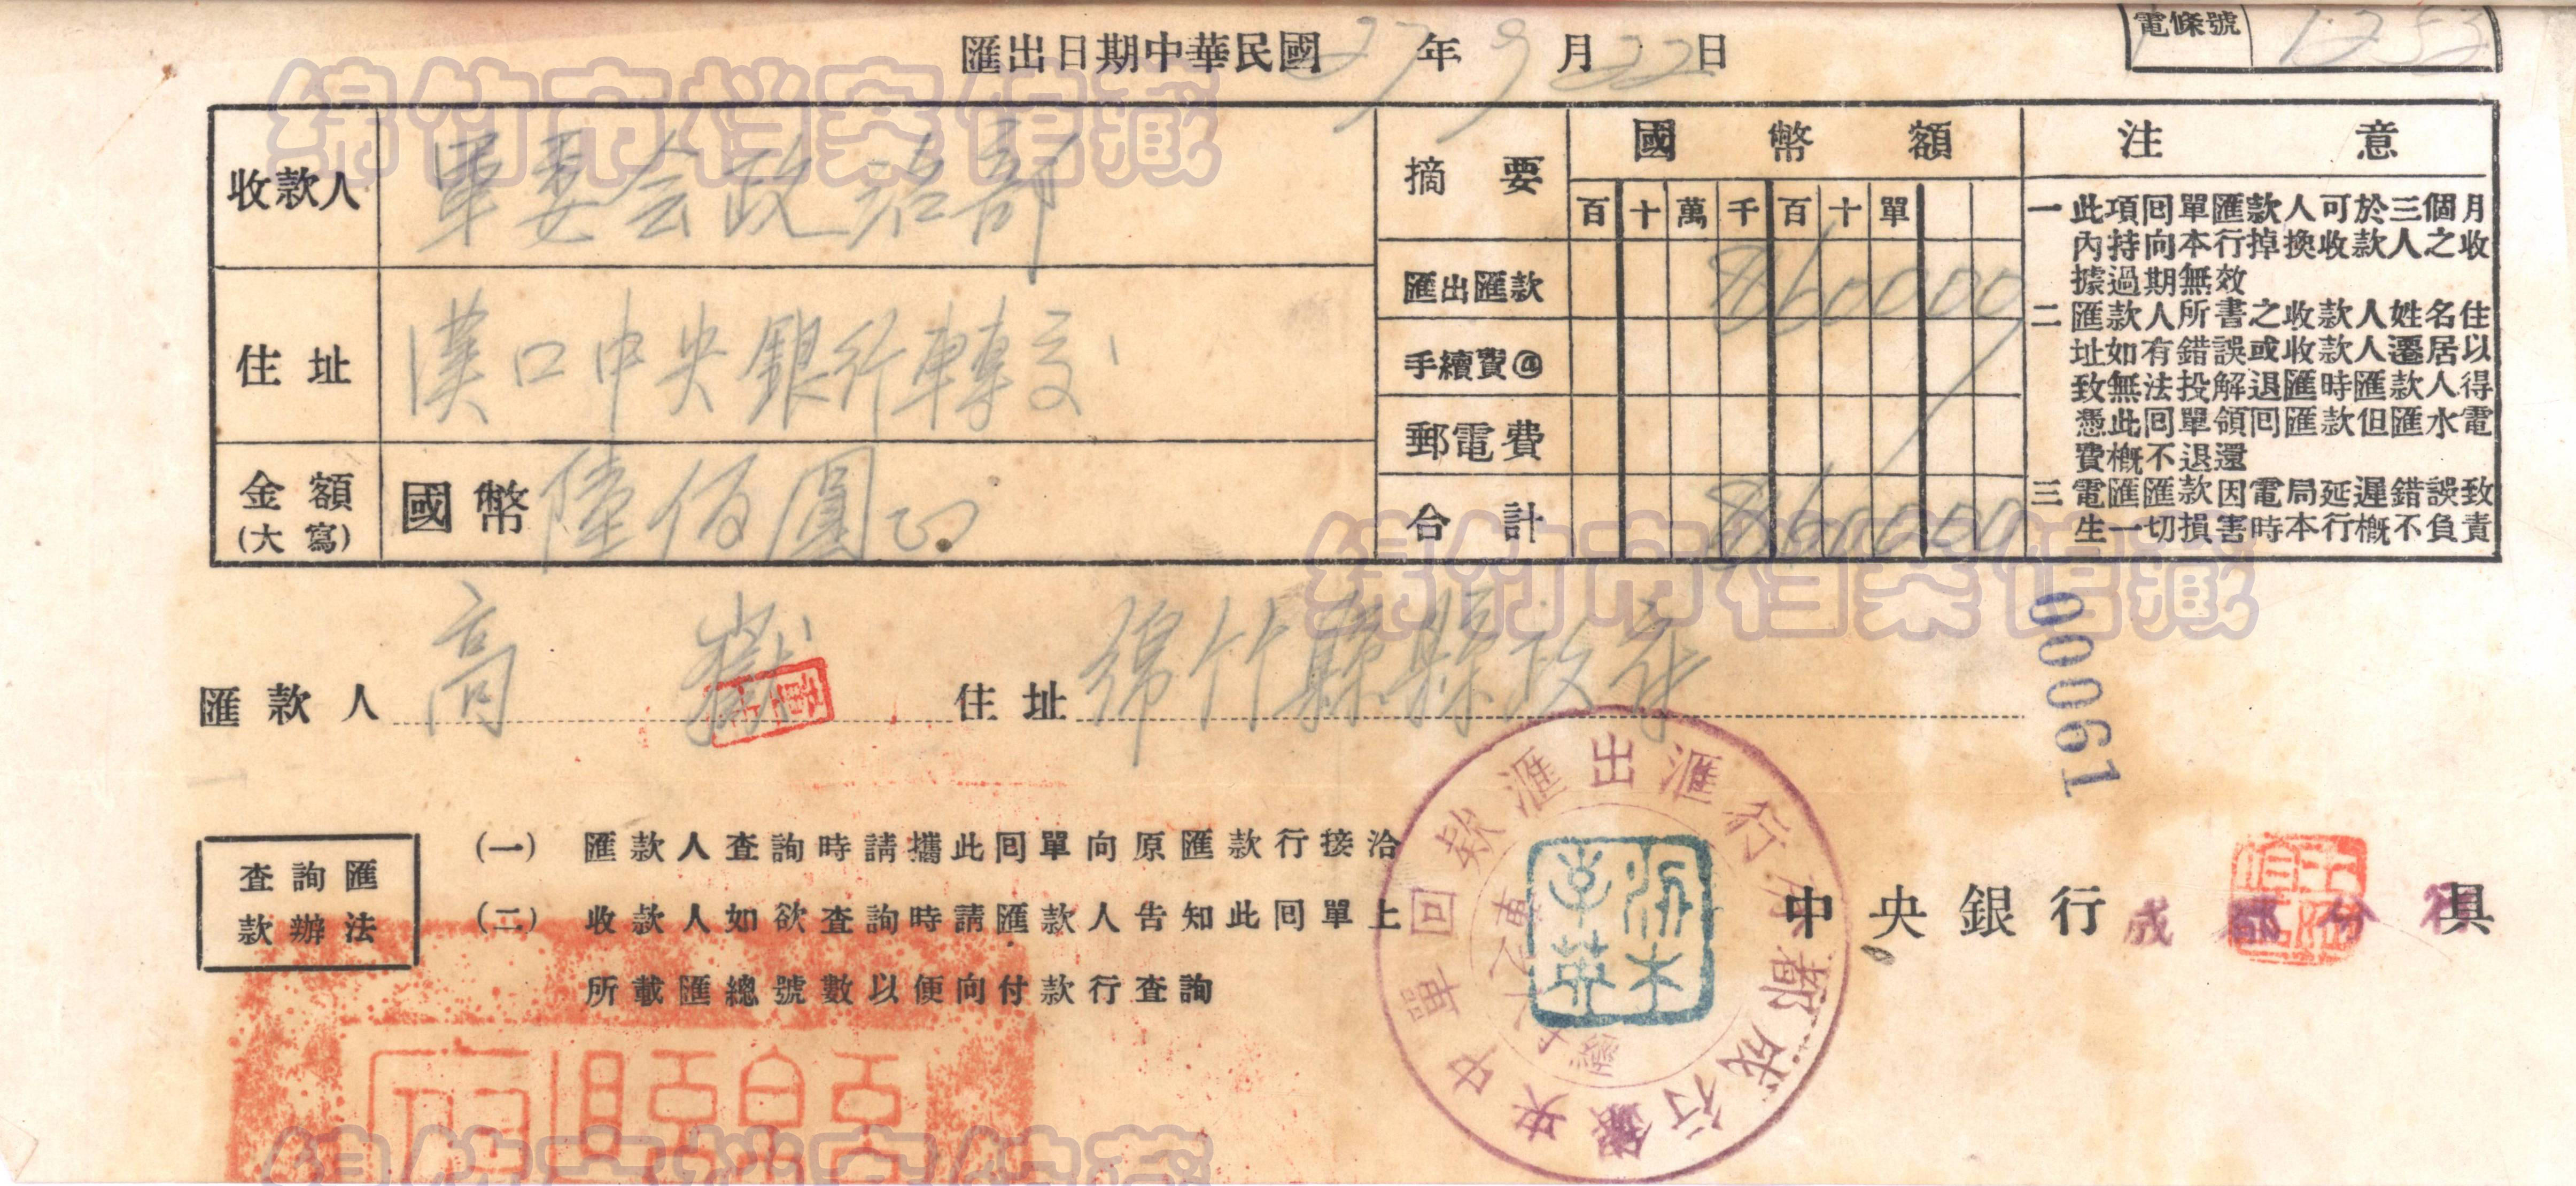 匯出日期中華民國27年9月22日
電條號 1253
收款人 軍委会政治部
住址 漢口中央銀行轉交
金額(大寫) 國幣陸佰圓正
摘要 國幣額
百十萬千百十單
匯出匯款 $60000
手續費@
郵電費
合計 $60000
注意
一此項回單匯款人可於三個月
內持向本行掉換收款人之收
據過期無效
二匯款人所書之收款人姓名住
址如有錯誤或收款人遷居以
致無法投解退匯時匯款人得
憑此回單領回匯款但匯水電
費概不退還
三電匯匯款因電局延遲錯誤致
生一切損害時本行概不負責
匯款人 高嶽 住址 綿竹縣縣政府
00061
查詢匯
款辦法
(一) 匯款人查詢時請攜此回單向原匯款行接洽
(二) 收款人如欲查詢時請匯款人告知此回單上
所載匯總號數以便向付款行查詢
中央銀行成都分行具
中央銀行成都分行匯出滙款回單
绵竹市档案馆藏
绵竹市档案馆藏
绵竹市档案馆藏